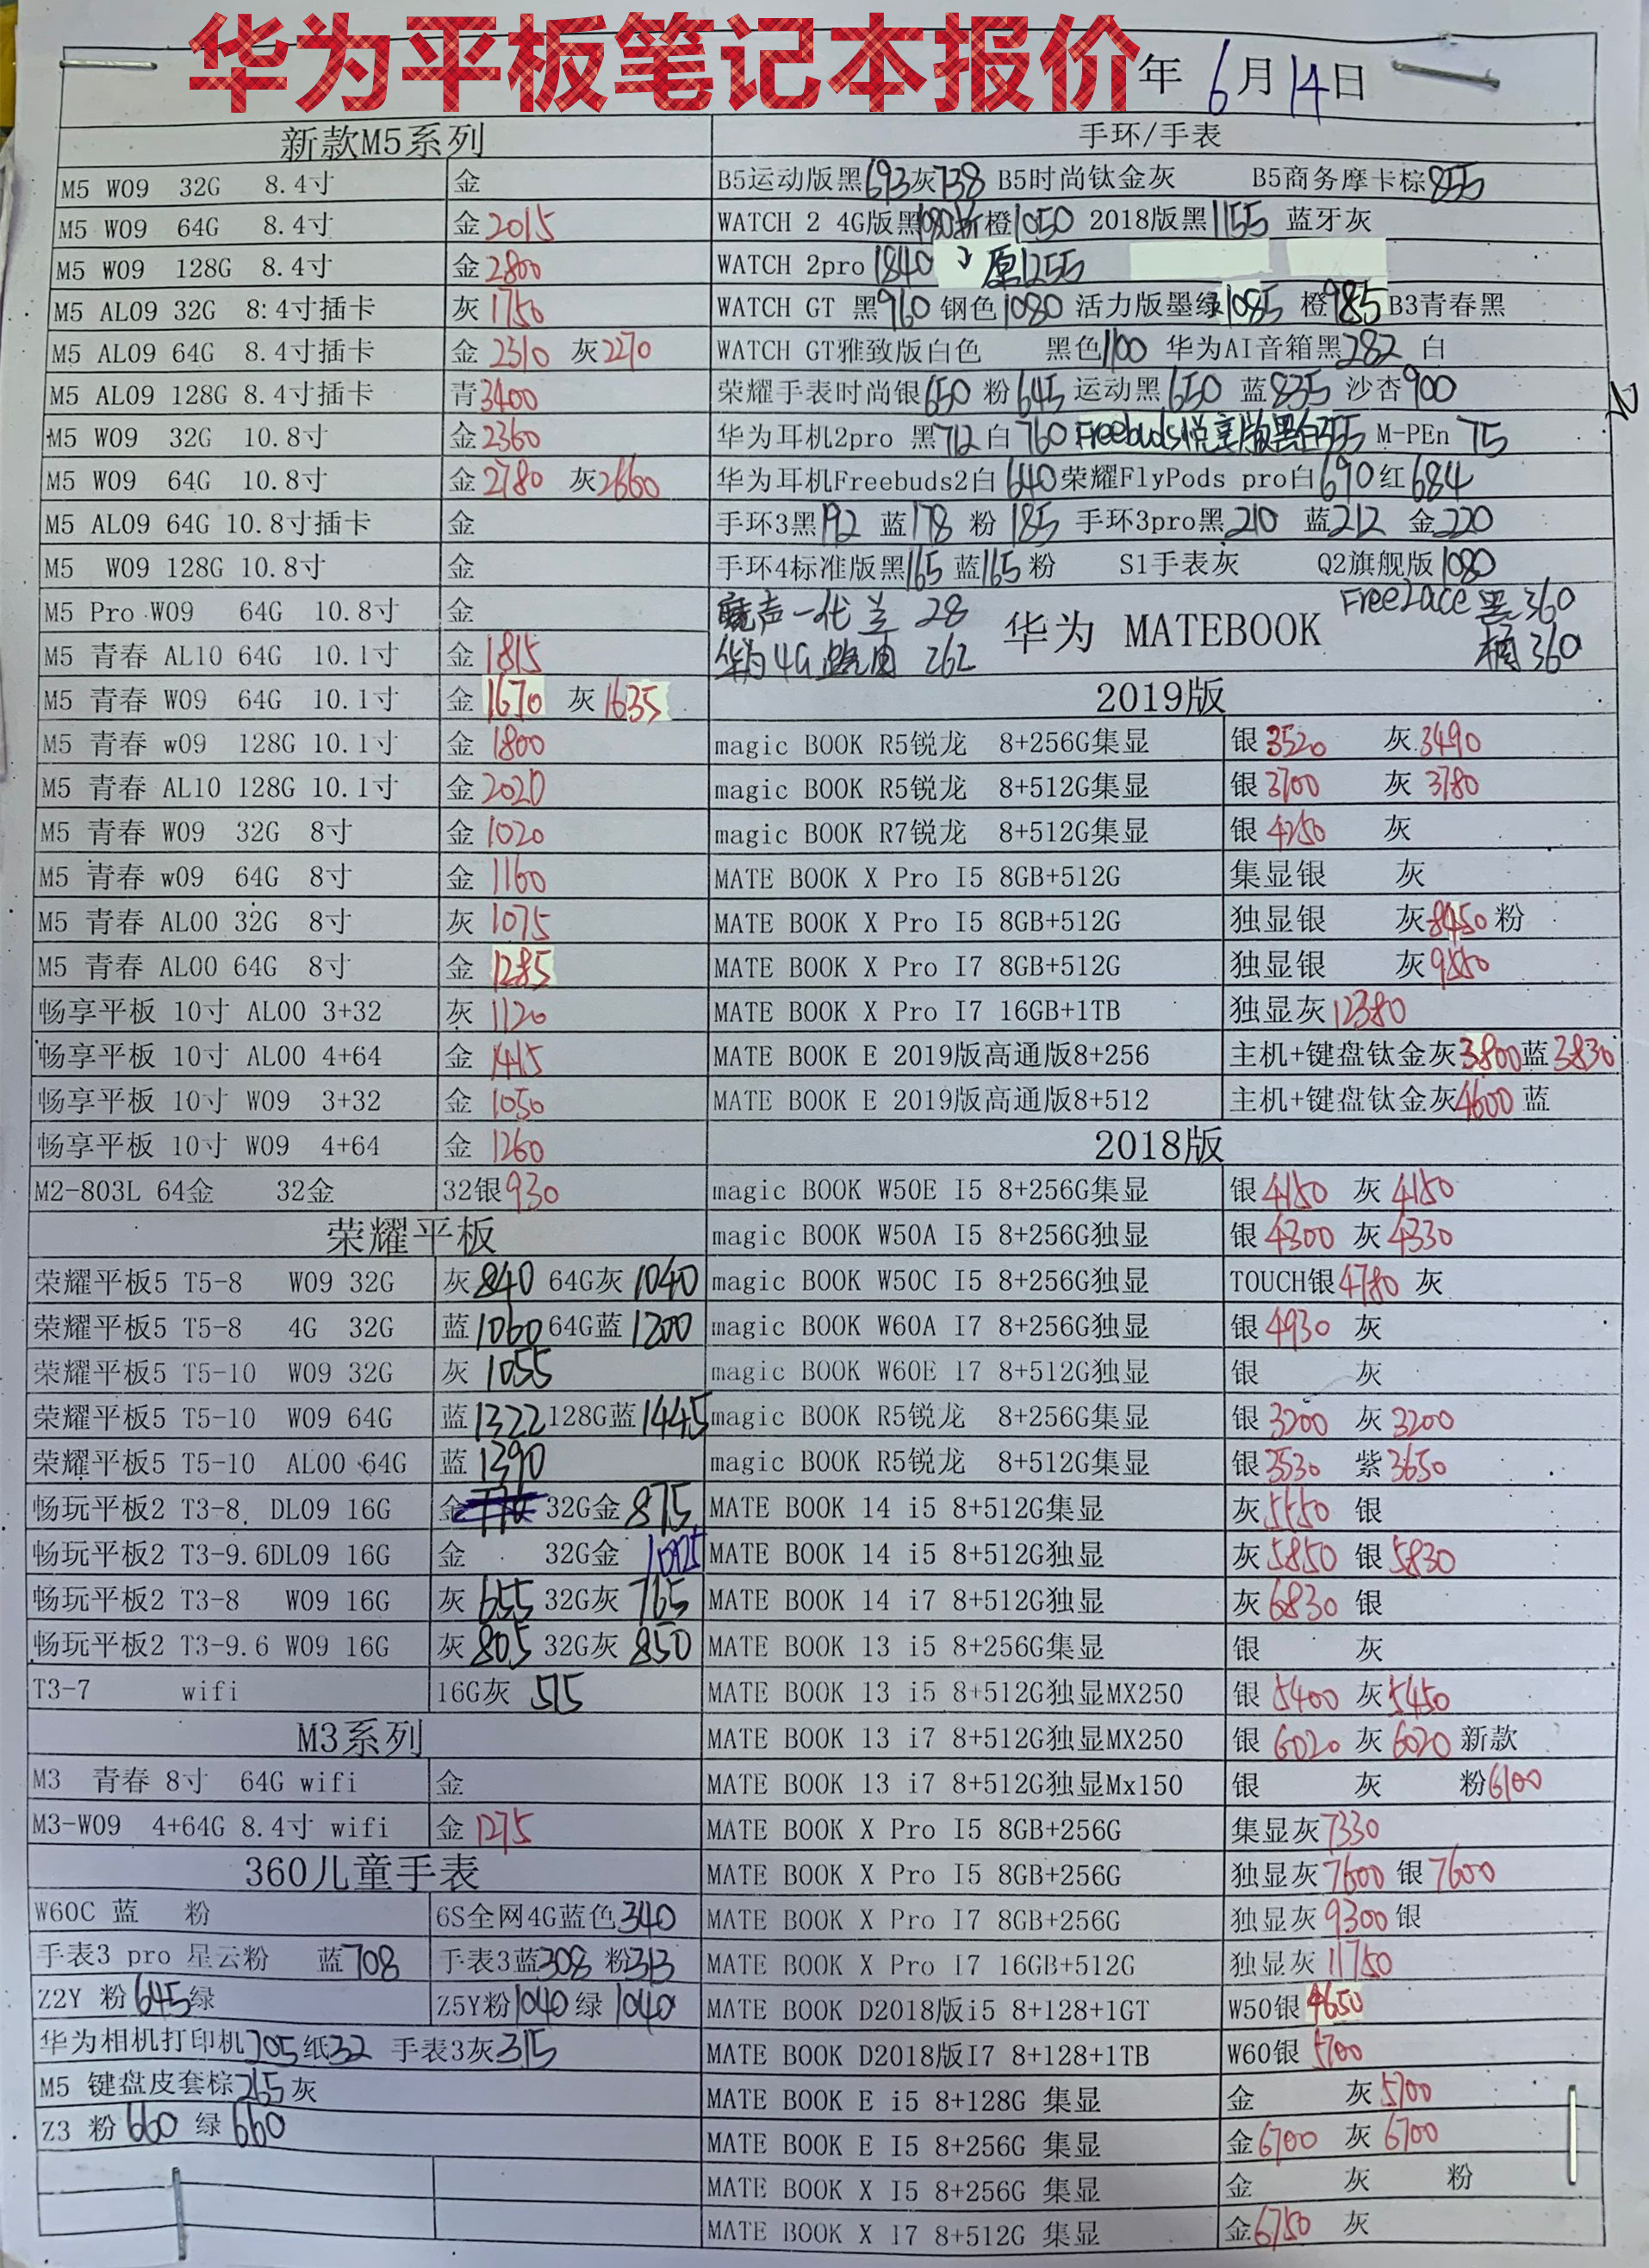 华为平板笔记本报价
年 6月14日
新款M5系列
M5 W09 32G 8.4寸 金
M5 W09 64G 8.4寸 金2015
M5 W09 128G 8.4寸 金2800
M5 AL09 32G 8:4寸插卡 灰1750
M5 AL09 64G 8.4寸插卡 金2310 灰2270
M5 AL09 128G 8.4寸插卡 青3400
M5 W09 32G 10.8寸 金2360
M5 W09 64G 10.8寸 金2780 灰2660
M5 AL09 64G 10.8寸插卡 金
M5 W09 128G 10.8寸 金
M5 Pro W09 64G 10.8寸 金
M5 青春 AL10 64G 10.1寸 金1815
M5 青春 W09 64G 10.1寸 金1670 灰1635
M5 青春 w09 128G 10.1寸 金1800
M5 青春 AL10 128G 10.1寸 金2020
M5 青春 W09 32G 8寸 金1020
M5 青春 w09 64G 8寸 金1160
M5 青春 AL00 32G 8寸 灰1075
M5 青春 AL00 64G 8寸 金1285
畅享平板 10寸 AL00 3+32 灰1120
畅享平板 10寸 AL00 4+64 金1415
畅享平板 10寸 W09 3+32 金1050
畅享平板 10寸 W09 4+64 金1260
M2-803L 64金 32金 32银930
荣耀平板
荣耀平板5 T5-8 W09 32G 灰840 64G灰1040
荣耀平板5 T5-8 4G 32G 蓝1060 64G蓝1200
荣耀平板5 T5-10 W09 32G 灰1055
荣耀平板5 T5-10 W09 64G 蓝1322 128G蓝1445
荣耀平板5 T5-10 AL00 64G 蓝1390
畅玩平板2 T3-8 DL09 16G 金 32G金875
畅玩平板2 T3-9.6DL09 16G 金 32G金
畅玩平板2 T3-8 W09 16G 灰655 32G灰765
畅玩平板2 T3-9.6 W09 16G 灰805 32G灰850
T3-7 wifi 16G灰 515
M3系列
M3 青春 8寸 64G wifi 金
M3-W09 4+64G 8.4寸 wifi 金1275
360儿童手表
W60C 蓝 粉 6S全网4G蓝色340
手表3 pro 星云粉 蓝708 手表3蓝308 粉313
Z2Y 粉645绿 Z5Y粉1040 绿1040
华为相机打印机705纸32 手表3灰315
M5 键盘皮套棕265灰
Z3 粉660 绿660
手环/手表
B5运动版黑693灰738 B5时尚钛金灰 B5商务摩卡棕855
WATCH 2 4G版黑1080新橙1050 2018版黑1155 蓝牙灰
WATCH 2pro 1840 原1255
WATCH GT 黑960 钢色1080 活力版墨绿1085 橙985 B3青春黑
WATCH GT雅致版白色 黑色1100 华为AI音箱黑282 白
荣耀手表时尚银650 粉645 运动黑650 蓝835 沙杏900
华为耳机2pro 黑712 白760 Freebuds悦享版黑白355 M-PEn 75
华为耳机Freebuds2白640荣耀FlyPods pro白690红684
手环3黑192 蓝178 粉185 手环3pro黑210 蓝212 金220
手环4标准版黑165 蓝165 粉 S1手表灰 Q2旗舰版1080
魔声一代 兰 28
华为4G路由 262
华为 MATEBOOK
Freelace 黑360
橘360
2019版
magic BOOK R5锐龙 8+256G集显 银3520 灰3490
magic BOOK R5锐龙 8+512G集显 银3700 灰3780
magic BOOK R7锐龙 8+512G集显 银4250 灰
MATE BOOK X Pro I5 8GB+512G 集显银 灰
MATE BOOK X Pro I5 8GB+512G 独显银 灰8450粉
MATE BOOK X Pro I7 8GB+512G 独显银 灰9550
MATE BOOK X Pro I7 16GB+1TB 独显灰12380
MATE BOOK E 2019版高通版8+256 主机+键盘钛金灰3800蓝3830
MATE BOOK E 2019版高通版8+512 主机+键盘钛金灰4600蓝
2018版
magic BOOK W50E I5 8+256G集显 银4150 灰4150
magic BOOK W50A I5 8+256G独显 银4300 灰4330
magic BOOK W50C I5 8+256G独显 TOUCH银4780 灰
magic BOOK W60A I7 8+256G独显 银4930 灰
magic BOOK W60E I7 8+512G独显 银 灰
magic BOOK R5锐龙 8+256G集显 银3200 灰3200
magic BOOK R5锐龙 8+512G集显 银3530 紫3650
MATE BOOK 14 i5 8+512G集显 灰5550 银
MATE BOOK 14 i5 8+512G独显 灰5850 银5830
MATE BOOK 14 i7 8+512G独显 灰6830 银
MATE BOOK 13 i5 8+256G集显 银 灰
MATE BOOK 13 i5 8+512G独显MX250 银5400 灰5450
MATE BOOK 13 i7 8+512G独显MX250 银6020 灰6020 新款
MATE BOOK 13 i7 8+512G独显Mx150 银 灰 粉6100
MATE BOOK X Pro I5 8GB+256G 集显灰7330
MATE BOOK X Pro I5 8GB+256G 独显灰7600 银7600
MATE BOOK X Pro I7 8GB+256G 独显灰9300银
MATE BOOK X Pro I7 16GB+512G 独显灰11750
MATE BOOK D2018版i5 8+128+1GT W50银4650
MATE BOOK D2018版I7 8+128+1TB W60银5700
MATE BOOK E i5 8+128G 集显 金 灰5700
MATE BOOK E I5 8+256G 集显 金6700 灰6700
MATE BOOK X I5 8+256G 集显 金 灰 粉
MATE BOOK X I7 8+512G 集显 金6750 灰